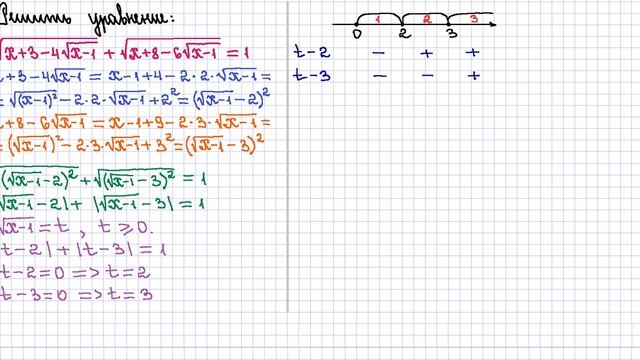 Решить уравнение:
√x+3-4√x-1 + √x+8-6√x-1 = 1
x+3-4√x-1 = x-1+4-2·2·√x-1 =
= √(x-1)² - 2·2·√x-1 + 2² = (√x-1 - 2)²
x+8-6√x-1 = x-1+9-2·3·√x-1 =
= (√x-1)² - 2·3·√x-1 + 3² = (√x-1 - 3)²
√(√x-1 - 2)² + √(√x-1 - 3)² = 1
|√x-1 - 2| + |√x-1 - 3| = 1
√x-1 = t, t ≥ 0.
|t-2| + |t-3| = 1
t-2=0 => t=2
t-3=0 => t=3
1 2 3
0 2 3
t-2 - + +
t-3 - - +